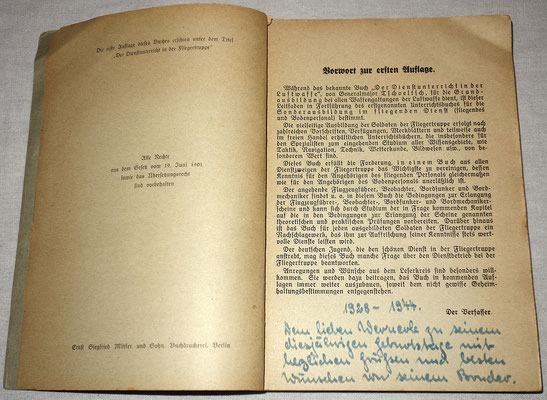 Die erste Auflage dieses Buches erschien unter dem Titel
"Der Dienstunterricht in der Fliegertruppe"
Alle Rechte
aus dem Gesetz vom 19. Juni 1901
sowie das Übersetzungsrecht
sind vorbehalten
Ernst Siegfried Mittler und Sohn, Buchdruckerei, Berlin
Vorwort zur ersten Auflage.
Während das bekannte Buch „Der Dienstunterricht in der
Luftwaffe", von Generalmajor Tschoeltsch, für die Grund-
ausbildung bei allen Waffengattungen der Luftwaffe dient, ist dieser
Leitfaden in Fortführung des erstgenannten Unterrichtsbuches für die
Sonderausbildung im fliegenden Dienst (fliegendes
und Bodenpersonal) bestimmt.
Die vielseitige Ausbildung der Soldaten der Fliegertruppe erfolgt nach
zahlreichen Vorschriften, Verfügungen, Merkblättern und teilweise auch
im freien Handel erhältlichen Unterrichtsbüchern, die insbesondere für
den Spezialisten zum eingehenden Studium aller Wissensgebiete, wie
Taktik, Navigation, Technik, Wetterkunde, Bildwesen usw. von be-
sonderem Wert sind.
Dieses Buch erfüllt die Forderung, in einem Buch aus allen
Dienstzweigen der Fliegertruppe das Wichtigste zu vereinigen, dessen
Kenntnis für den Angehörigen des fliegenden Personals gleichermaßen
wie für den Angehörigen des Bodenpersonals unerläßlich ist.
Der angehende Flugzeugführer, Beobachter, Bordfunker und Bord-
mechaniker findet u. a. in diesem Buch die Bedingungen zur Erlangung
der Flugzeugführer-, Beobachter-, Bordfunker- und Bordmechaniker-
scheine und kann sich durch Studium der in Frage kommenden Kapitel
auf die in den Bedingungen zur Erlangung der Scheine genannten
theoretischen und praktischen Prüfungen vorbereiten. Darüber hinaus
ist das Buch für jeden ausgebildeten Soldaten der Fliegertruppe ein
Nachschlagewerk, das ihm zur Auffrischung seiner Kenntnisse stets wert-
volle Dienste leisten wird.
Der deutschen Jugend, die den schönen Dienst in der Fliegertruppe
anstrebt, mag dieses Buch manche Frage über den Dienstbetrieb bei der
Fliegertruppe beantworten.
Anregungen und Wünsche aus dem Leserkreis sind besonders will-
kommen. Sie werden dazu beitragen, das Buch in kommenden Auf-
lagen immer weiter auszubauen, soweit dem nicht gewisse Geheim-
haltungsbestimmungen entgegenstehen.
Der Verfasser.
1928 – 1944.
Dem lieben Wernerle zu seinem
diesjährigen Geburtstage mit
herzlichen Grüßen und besten
Wünschen von seinem Bruder.